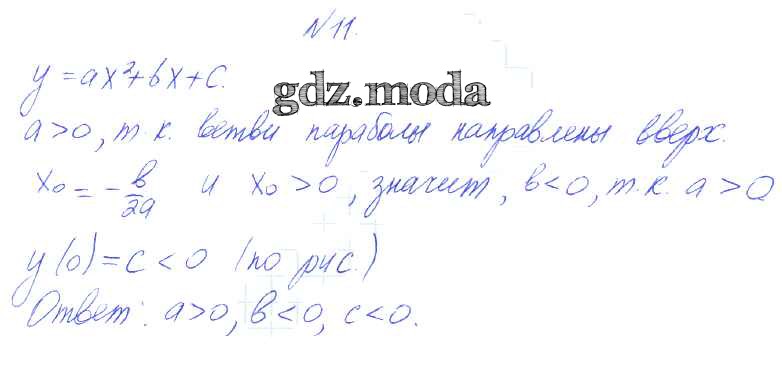 N 11.
y = ax²+bx+c.
gdz.moda
a>0, т.к. ветви параболы направлены вверх.
x₀ = -b/2a и x₀ >0, значит, b<0, т.к. a >0
y(0)=c<0 (по рис.)
Ответ: a>0, b<0, c<0.